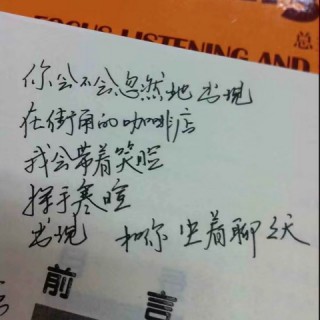 FOCUS LISTENING AND
总
你会不会忽然地出现
在街角的咖啡店
我会带着笑脸
挥手寒暄
出现 和你 坐着聊天
前言